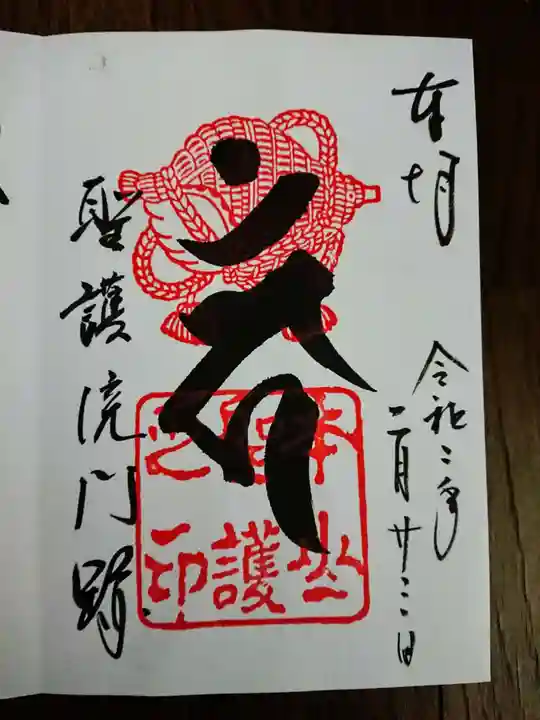 奉拝
令和二年
二月廿三日
聖護院門跡
本山
護
之印